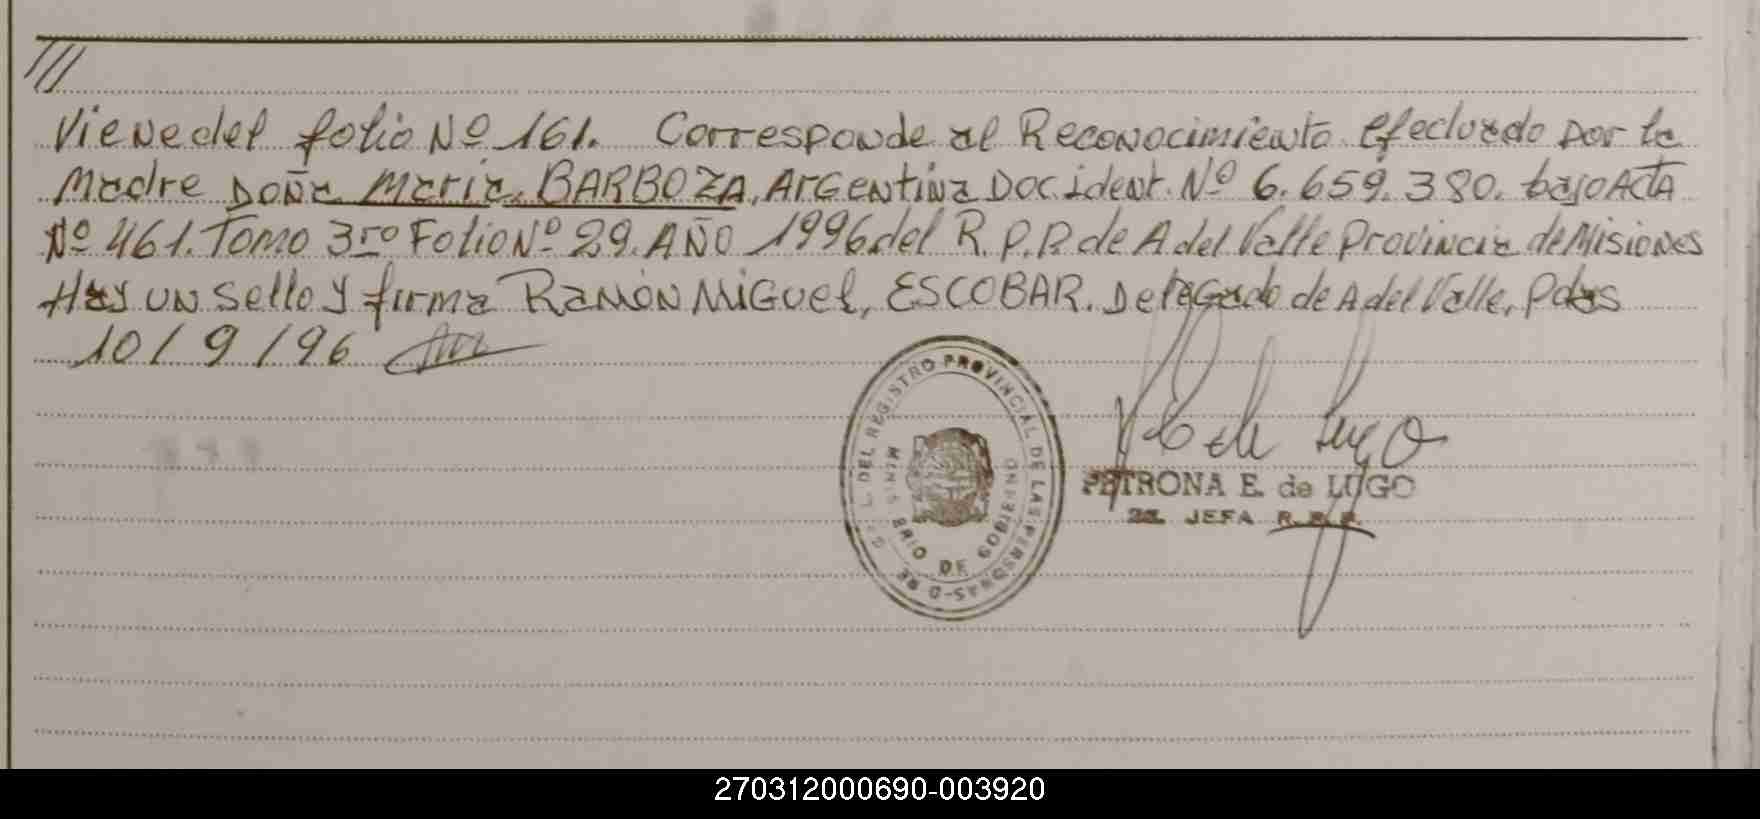 ///
Viene del folio Nº 161. Corresponde al Reconocimiento efectuado por la
Madre Doña Maria BARBOZA, Argentina Doc. ident. Nº 6.659.380. bajo Acta
Nº 461. Tomo 3ro Folio Nº 29. AÑO 1996 del R.P.P. de A del Valle Provincia de Misiones
Hay un sello y firma Ramón Miguel, ESCOBAR. Delegado de A del Valle, Pdas
10/9/96
DEL REGISTRO PROVINCIAL DE LAS PERSONAS
MINISTERIO DE GOBIERNO
P E de Lugo
PETRONA E. de LUGO
JEFA R.P.P.
270312000690-003920